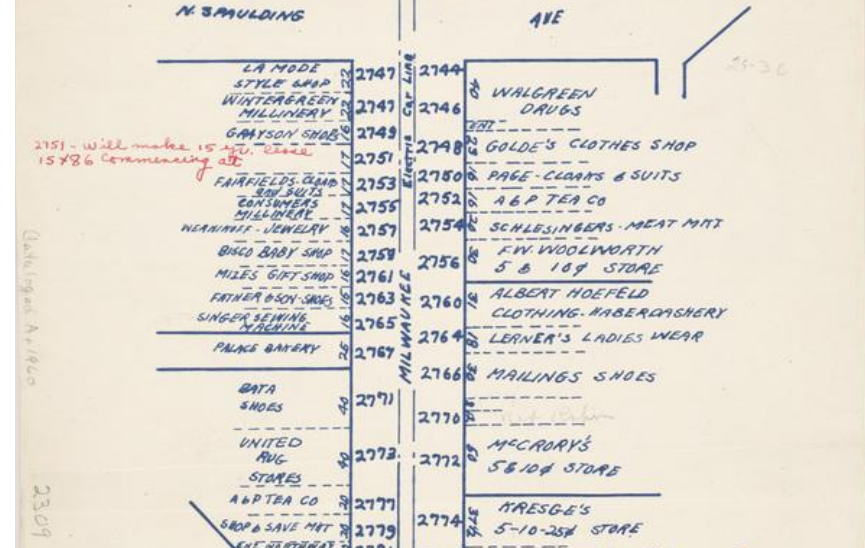 N. SPAULDING
AVE
LA MODE
STYLE SHOP
22
2747
WINTERGREEN
MILLINERY
22
2747
GRAYSON SHOP
16
2749
2751 - Will make 15 yr. lease
15 x 86 Commencing at
17
2751
FAIRFIELDS-CLOAKS
AND SUITS
17
2753
CONSUMERS
MILLINERY
17
2755
WERNIKOFF - JEWELRY
16
2757
BISCO BABY SHOP
17
2759
MIZES GIFT SHOP
16
2761
FATHER & SON-SHOES
15
2763
SINGER SEWING
MACHINE
16
2765
PALACE BAKERY
25
2767
BATA
SHOES
40
2771
UNITED
RUG
STORES
40
2773
A & P TEA CO
20
2777
SHOP & SAVE MKT
30
2779
Electric Car Line
MILWAUKEE
2744
40
WALGREEN
DRUGS
2746
ENT
2748
23
GOLDE'S CLOTHES SHOP
2750
16
PAGE-CLOAKS & SUITS
2752
16
A & P TEA CO
2754
20
SCHLESINGERS-MEAT MKT
2756
30
F.W. WOOLWORTH
5 & 10¢ STORE
2760
31
ALBERT HOEFELD
CLOTHING-HABERDASHERY
2764
18
LERNER'S LADIES WEAR
2766
30
MAILINGS SHOES
2770
2772
50
McCRORY'S
5 & 10¢ STORE
2774
KRESGE'S
5-10-25¢ STORE
2309